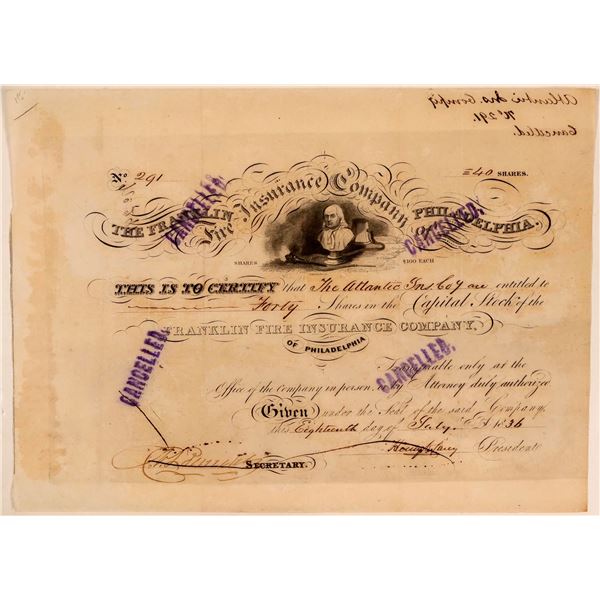 Atlantic Ins. Compy
No 291.
Cancelled.
No 291
=40 SHARES.
CANCELLED.
CANCELLED.
THE FRANKLIN Fire Insurance Company OF PHILADELPHIA.
SHARES $100 EACH
THIS IS TO CERTIFY that The Atlantic Ins Coy are entitled to
Forty Shares in the Capital Stock of the
FRANKLIN FIRE INSURANCE COMPANY,
OF PHILADELPHIA
CANCELLED.
CANCELLED.
Transferable only at the
Office of the Company in person, or by Attorney duly authorized
Given under the Seal of the said Company,
this Eighteenth day of July 1836
SECRETARY.
President